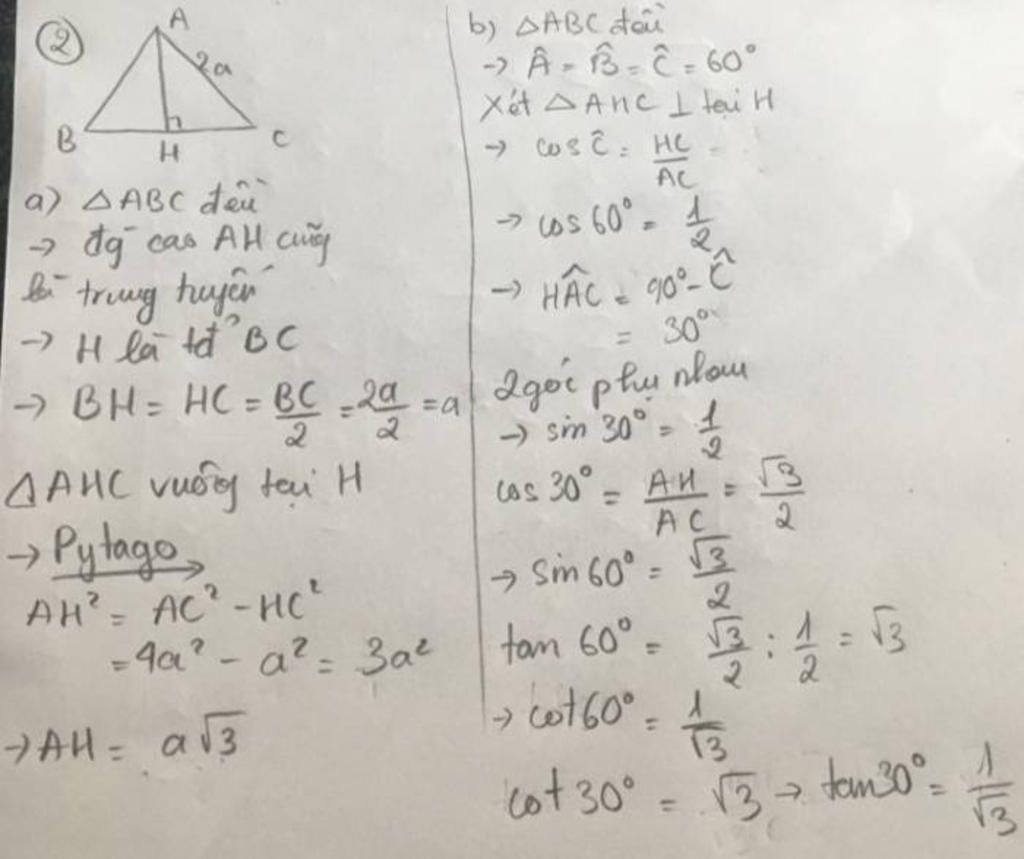 ②
A
2a
B
H
C
a) △ABC đều
→ đg cao AH cũng
là trung tuyến
→ H là tđ BC
→ BH = HC = BC/2 = 2a/2 = a
△AHC vuông tại H
→ Pytago
AH² = AC² - HC²
= 4a² - a² = 3a²
→ AH = a√3
b) △ABC đều
→ Â = B̂ = Ĉ = 60°
Xét △AHC ⊥ tại H
→ cos Ĉ = HC/AC
→ cos 60° = 1/2
→ HÂC = 90° - Ĉ
= 30°
2 góc phụ nhau
→ sin 30° = 1/2
cos 30° = AH/AC = √3/2
→ sin 60° = √3/2
tan 60° = √3/2 : 1/2 = √3
→ cot 60° = 1/√3
cot 30° = √3 → tan 30° = 1/√3